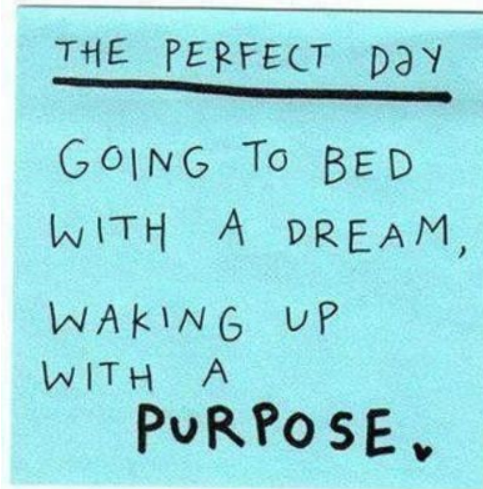 THE PERFECT DaY
GOING To BED
WITH A DREAM,
WAKING UP
WITH A
PURPOSE.